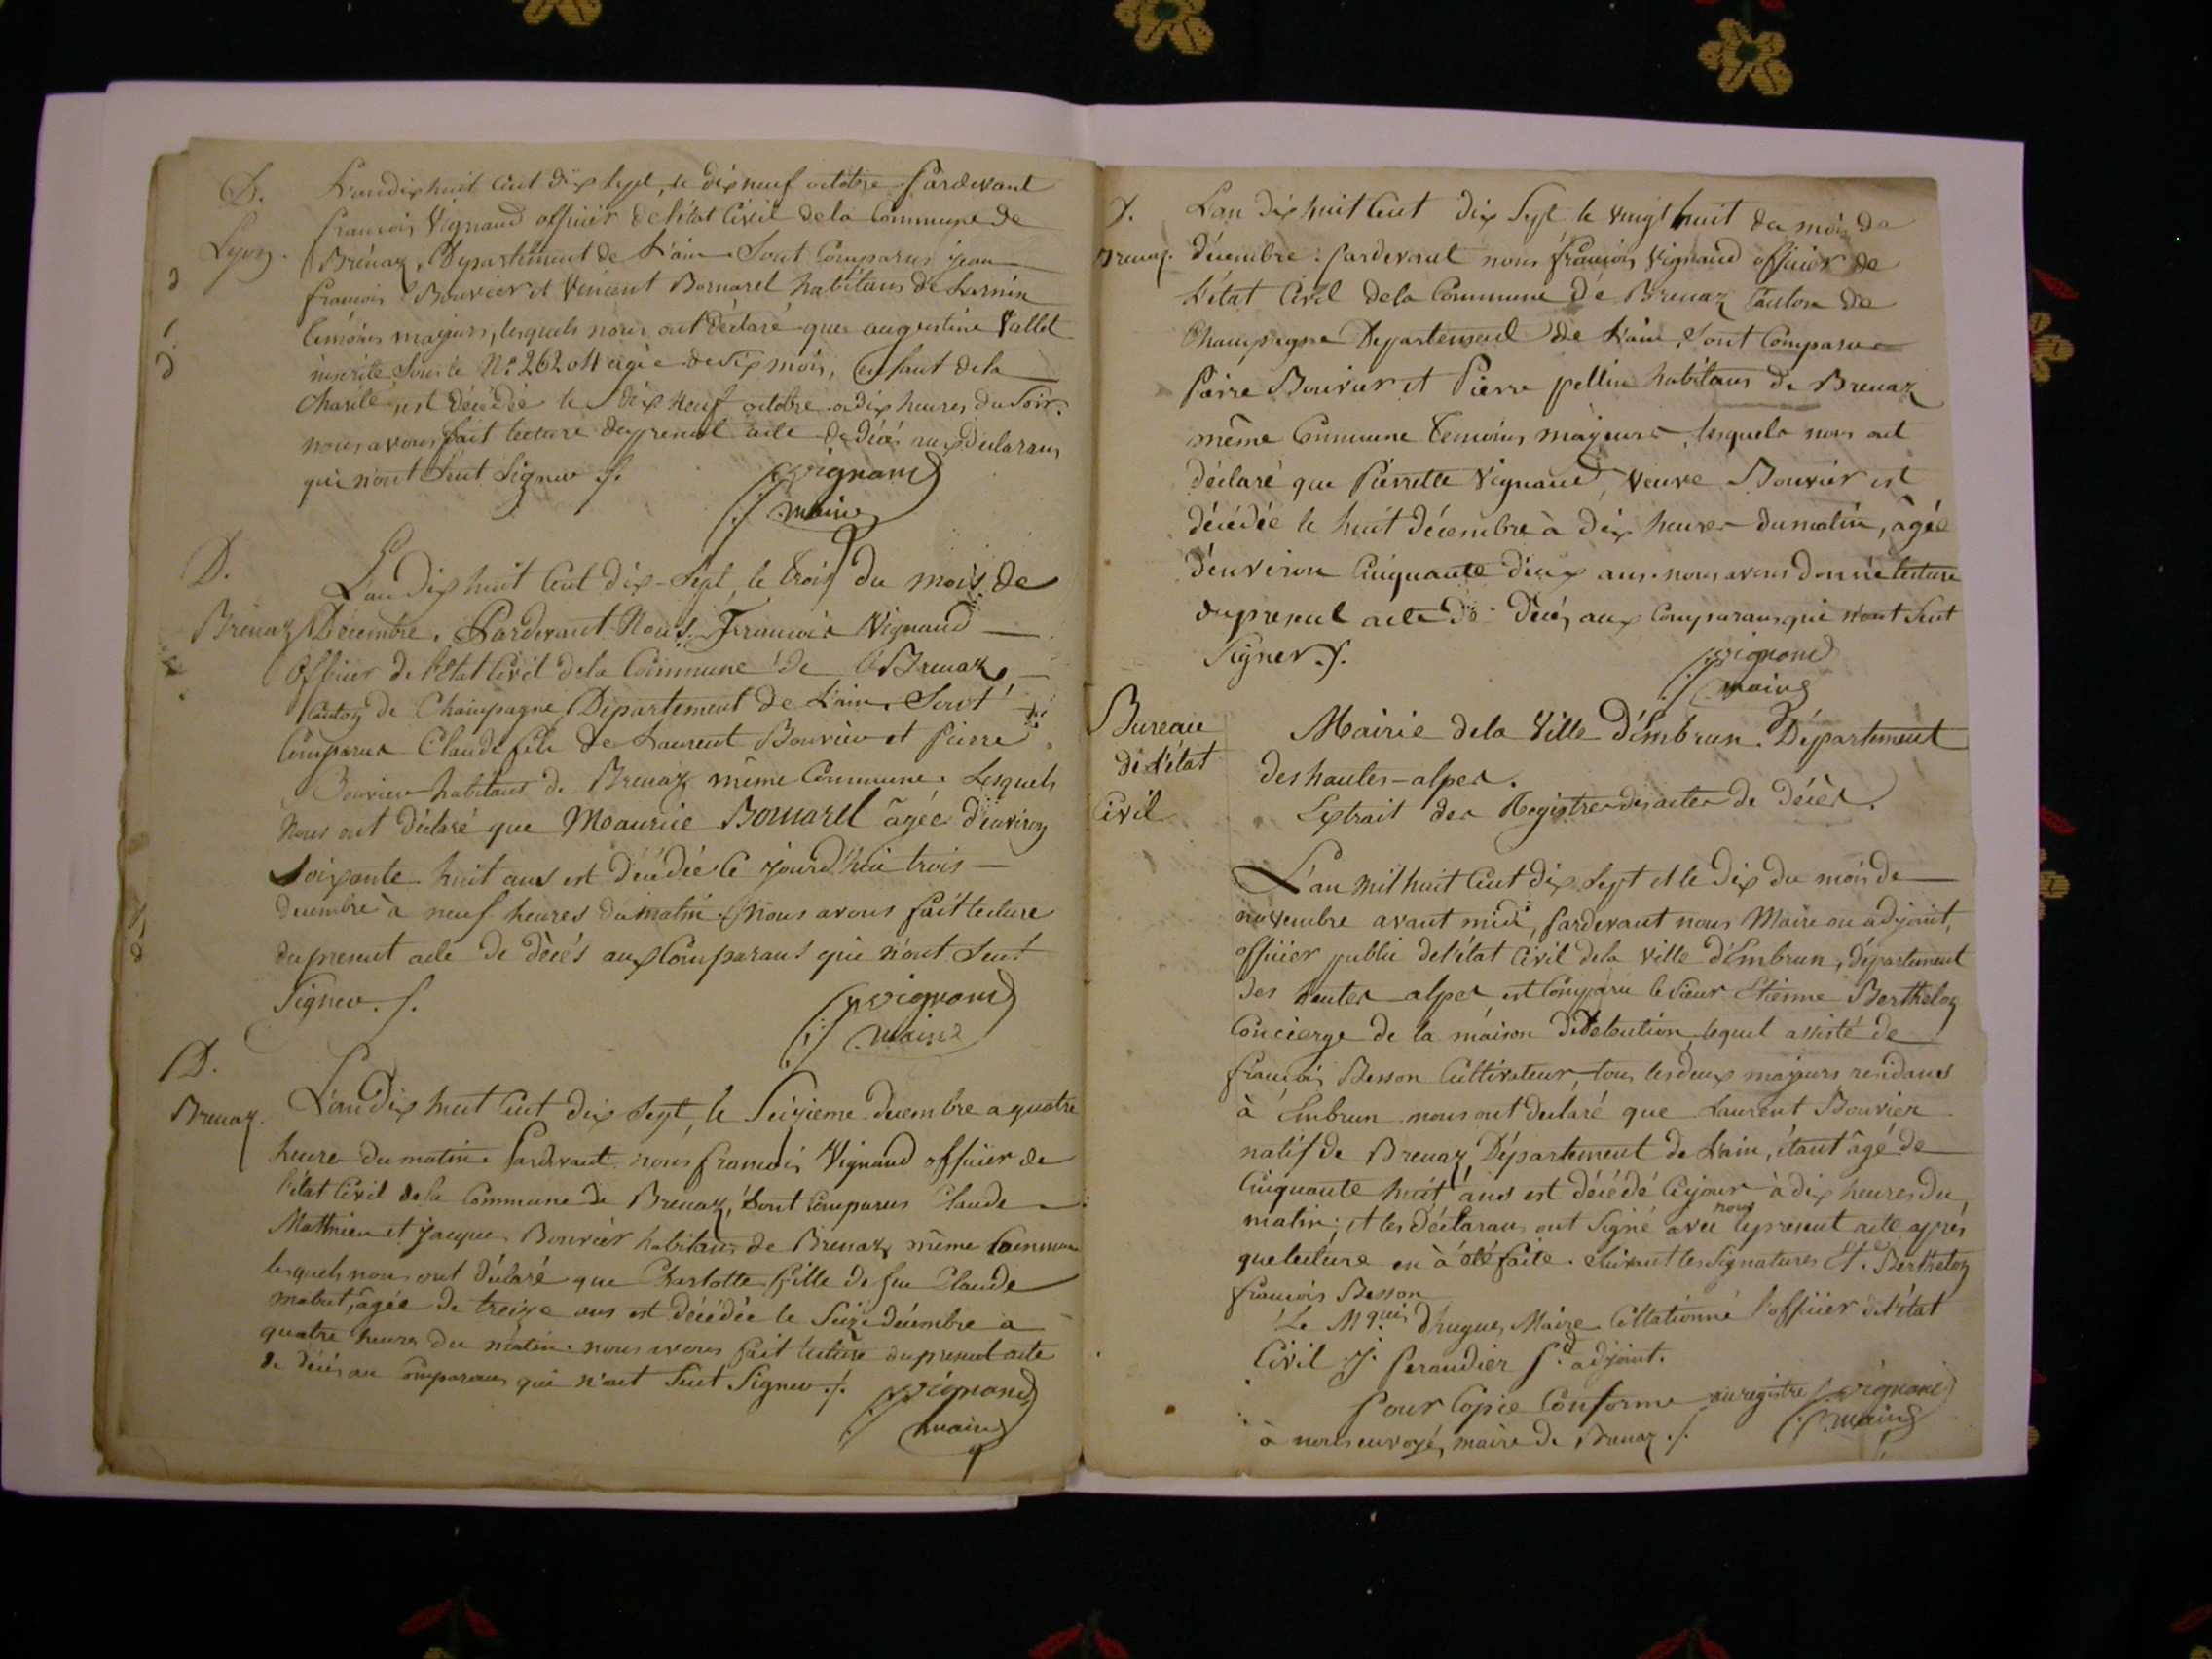 D.
Lyon.
L'an dix huit cent dix sept, le dix neuf octobre Pardevant
françois Vignand officier de l'état Civil de la Commune de
Brénaz, Département de L'ain Sont Comparus jean
françois Bouvier et Vincent Bornarel habitans de
témoins majeurs, lesquels nous ont déclaré que augustine Vallet
inscrite Sous le N° 26204 agée de Six mois, enfant de la
Charité est décédée le dix neuf octobre a dix heures du Soir.
nous avons fait lecture du present acte de décés aux declarans
qui n'ont Seut Signer ./.
vignand
maire
D.
Brénaz
L'an Dix huit Cent dix-Sept, le trois du mois de
Décembre, Pardevant Nous François Vignand
Officier de l'Etat Civil de la Commune de Brenaz,
Canton de Champagne Département de L'ain. Sont
Comparus Claude fils de Laurent Bouvier et Pierre
Bouvier habitans de Brenaz même Commune. Lesquels
Nous ont déclaré que Meaurice Bornarel agée d'environ
Soixante huit ans est décédée le jourd'hui trois
decembre à neuf heures du matin. Nous avons fait lecture
du present acte de décés aux Comparans qui n'ont Seut
Signer ./.
vignand
maire
D.
Brenaz.
L'an Dix huit Cent dix Sept, le Seizieme decembre a quatre
heures du matin. Pardevant nous françois Vignand officier de
l'état Civil de la Commune de Brenaz, Sont Comparus Claude
Matthieu et jacques Bouvier habitans de Brenaz même Commune
lesquels nous ont déclaré que Charlotte fille de feu Claude
, âgée de treize ans est décédée le Seize décembre a
quatre heures du matin. nous avons fait lecture du present acte
de décés au Comparans qui n'ont Seut Signer ./.
vignand
maire
D.
Brenaz.
L'an dix huit Cent dix Sept le vingt huit du mois de
décembre : Pardevant nous françois Vignand officier de
l'état Civil de la Commune de Brenaz Canton de
Champagne Departement de L'ain, Sont Comparus
Pierre Bouvier et Pierre pellin habitans de Brenaz
même Commune temoins majeurs, lesquels nous ont
déclaré que Pierrette Vignand, veuve Bouvier est
décédée le huit décembre à dix heures du matin, âgée
d'environ Cinquante deux ans. nous avons donné lecture
du present acte de décés aux Comparans qui n'ont Seut
Signer ./.
vignand
maire
Bureau
de l'état
Civil
Mairie de la Ville d'Embrun. Département
des hautes-alpes.
Extrait des Registres des actes de décès.
L'an mil huit Cent dix Sept et le dix du mois de
novembre avant midi, Pardevant nous Maire ou adjoint,
officier public de l'état Civil de la ville d'Embrun, département
des hautes alpes est Comparu le Sieur Etienne Berthelon
Concierge de la maison de detention, lequel assisté de
françois Besson Cultivateur, tous les deux majeurs residans
à Embrun nous ont declaré que Laurent Bouvier
natif de Brenaz, Département de L'ain, étant âgé de
Cinquante huit ans est décédé Cejour à dix heures du
matin; et les déclarans ont Signé avec nous le present acte après
que lecture en à été faite. Suivent les Signatures Et. Berthelon
françois Besson
Le Mquis d'hugues, Maire Collationné l'officier de l'état
Civil J. P.d adjoint.
Pour Copie Conforme au registre vignand
à nous envoyé, maire de Brenaz ./. maire